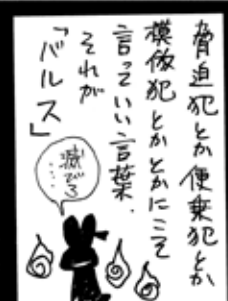 脅迫犯とか便乗犯とか
模倣犯とかとかにこそ
言っていい言葉.
それが
「バルス」
滅びろ
……